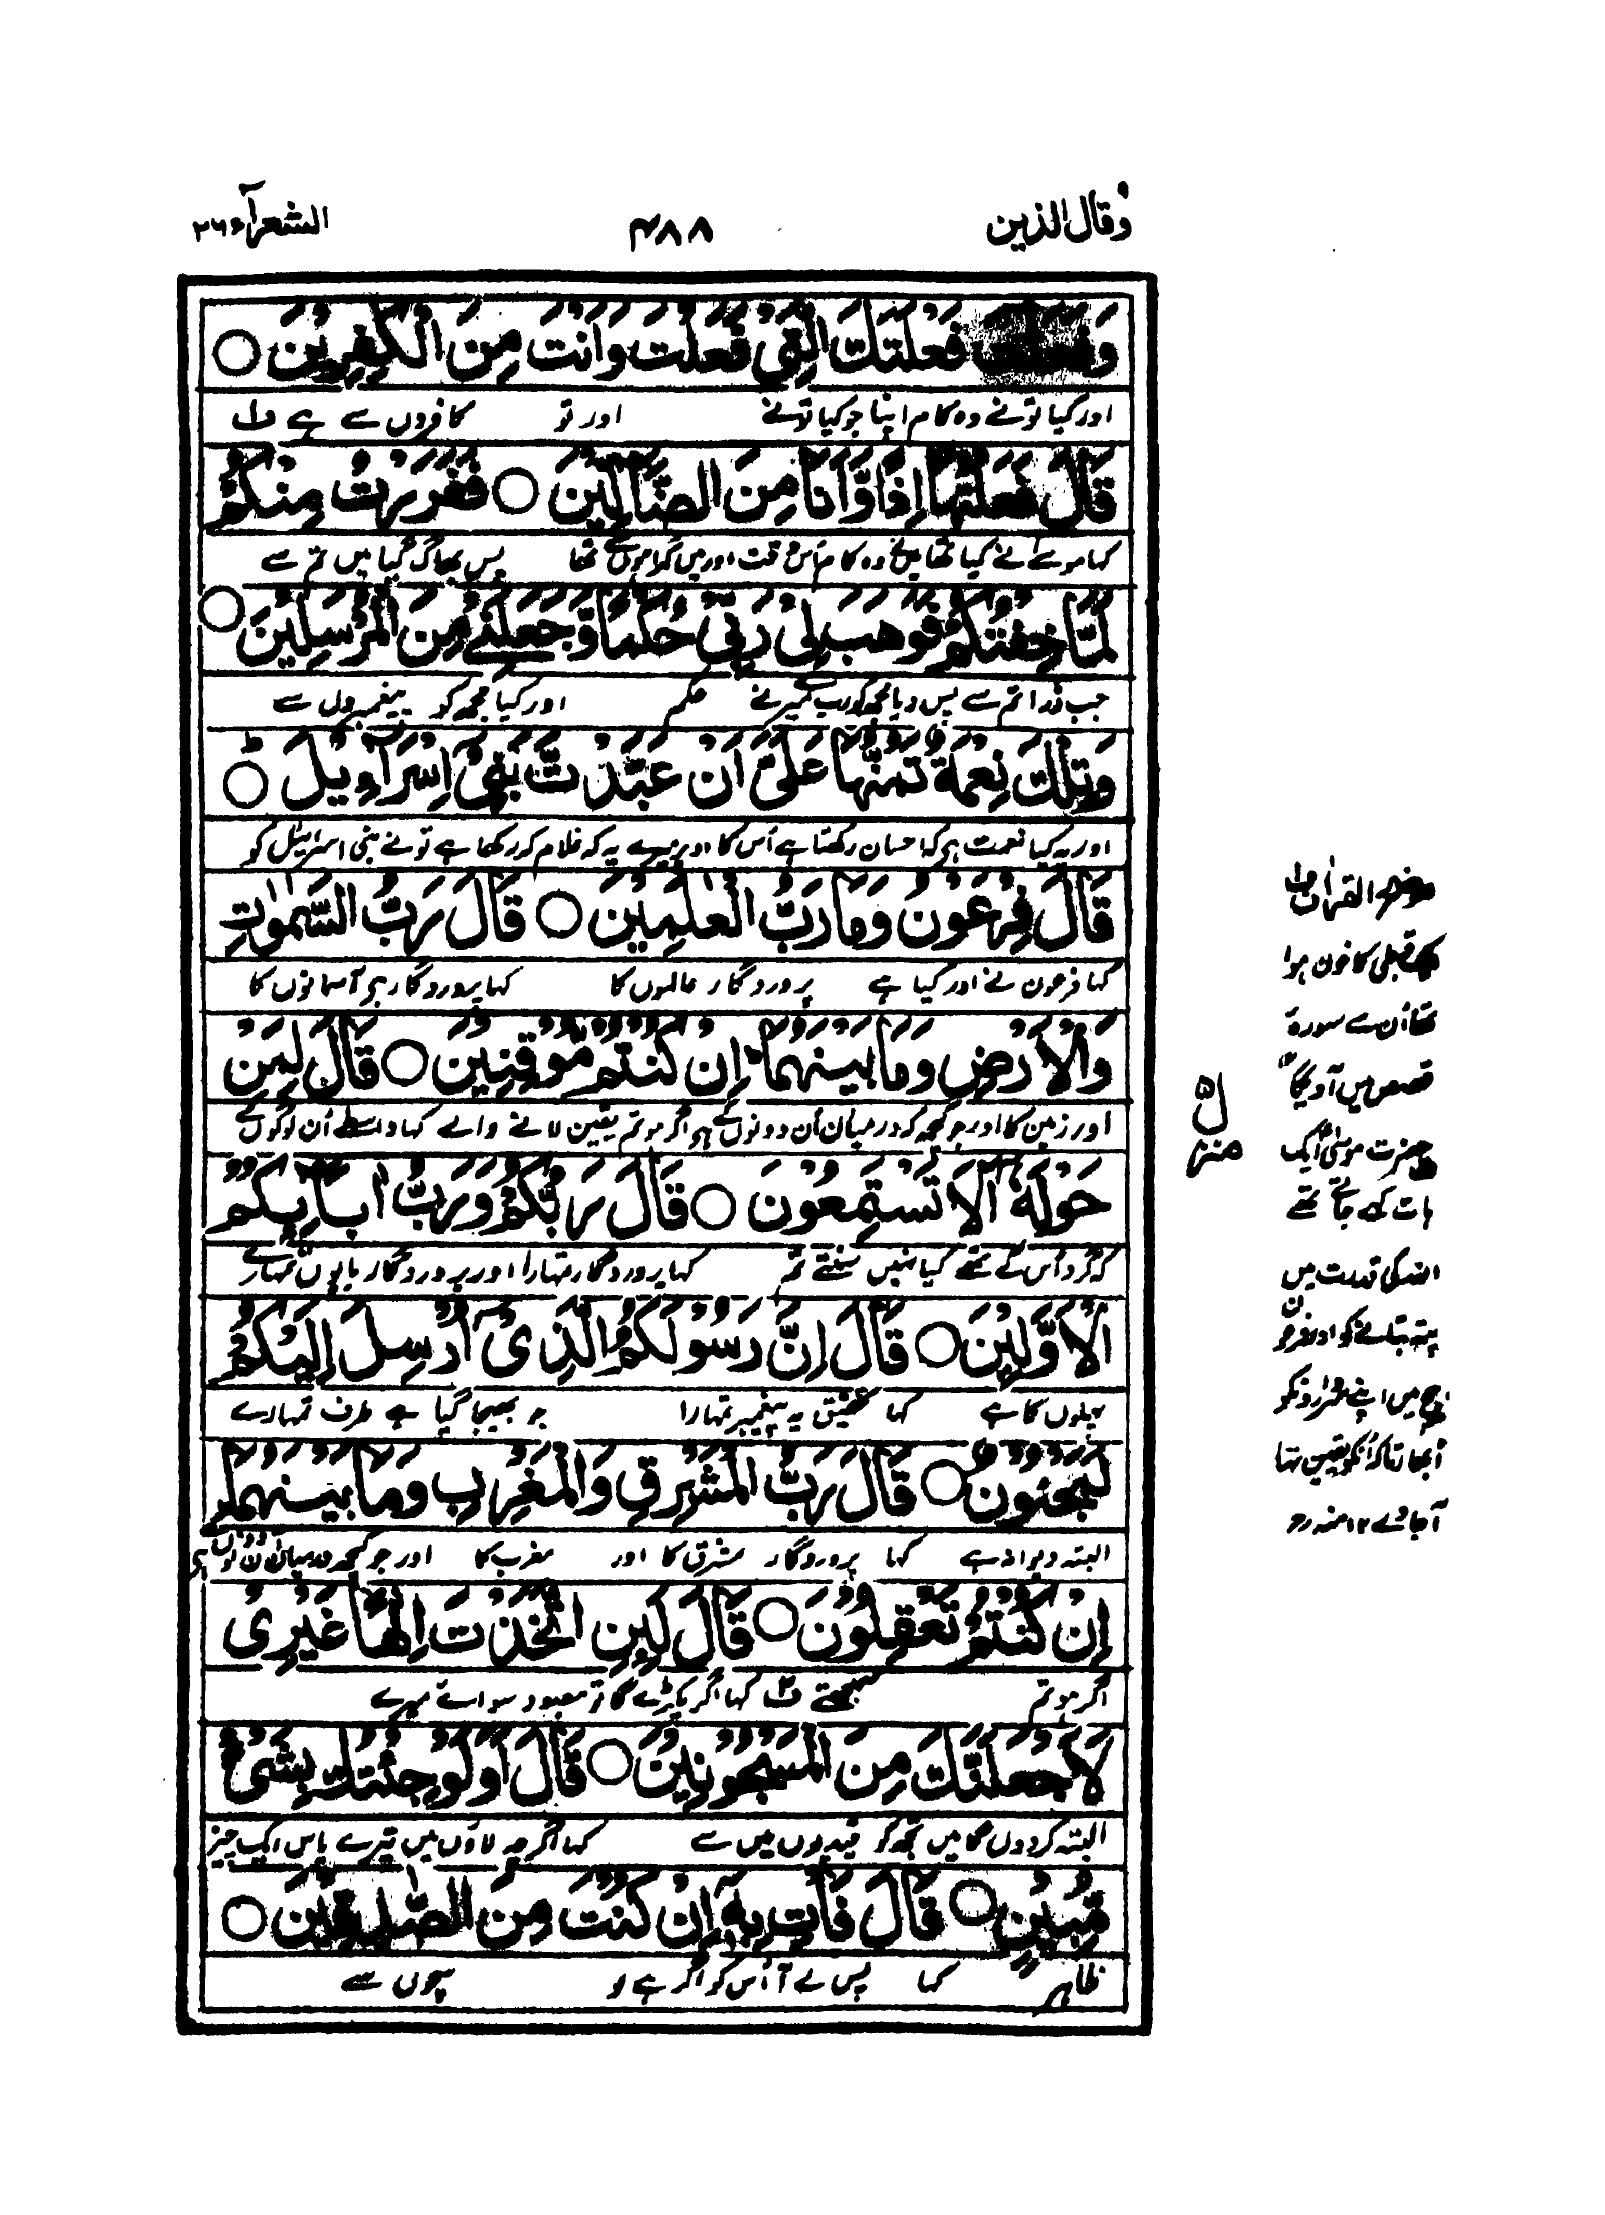 وقال الذین
۴۸۸
الشعرآء ۲۶
وَفَعَلْتَ فَعْلَتَكَ الَّتِیْ فَعَلْتَ وَاَنْتَ مِنَ الْكٰفِرِیْنَ ○
اور کیا تونے وہ کام اپنا جو کیا تونے اور تو کافروں سے ہے ف۱
قَالَ فَعَلْتُهَاۤ اِذًا وَّاَنَا مِنَ الضَّآلِّیْنَ ○ فَفَرَرْتُ مِنْكُمْ
کہا موسےٰ نے کیا تھا میں نے وہ کام اُس وقت اور میں گمراہوں سے تھا پس بھاگ گیا میں تم سے
لَمَّا خِفْتُكُمْ فَوَهَبَ لِیْ رَبِّیْ حُكْمًا وَّجَعَلَنِیْ مِنَ الْمُرْسَلِیْنَ ○
جب ڈرا تم سے پس دیا مجھکو رب میرے نے حکم اور کیا مجھ کو پیغمبروں سے
وَتِلْكَ نِعْمَةٌ تَمُنُّهَا عَلَیَّ اَنْ عَبَّدْتَّ بَنِیْۤ اِسْرَآءِیْلَ ○ؕ
اور یہ کیا نعمت ہے کہ احسان رکھتا ہے اُس کا اوپر میرے یہ کہ غلام کر رکھا ہے تو نے بنی اسرائیل کو
قَالَ فِرْعَوْنُ وَمَا رَبُّ الْعٰلَمِیْنَ ○ قَالَ رَبُّ السَّمٰوٰتِ
کہا فرعون نے اور کیا ہے پروردگار عالموں کا کہا پروردگار ہے آسمانوں کا
وَالْاَرْضِ وَمَا بَیْنَهُمَاؕ اِنْ كُنْتُمْ مُّوْقِنِیْنَ ○ قَالَ لِمَنْ
اور زمین کا اور جو کچھ کہ درمیان اُن دونوں کے ہے اگر ہو تم یقین لانے والے کہا واسطے اُن لوگوں کے
حَوْلَهٗۤ اَلَا تَسْتَمِعُوْنَ ○ قَالَ رَبُّكُمْ وَرَبُّ اٰبَآئِكُمُ
کہ گرد اُس کے تھے کیا نہیں سنتے تم کہا پروردگار تمہارا اور پروردگار باپوں تمہارے
الْاَوَّلِیْنَ ○ قَالَ اِنَّ رَسُوْلَكُمُ الَّذِیْۤ اُرْسِلَ اِلَیْكُمْ
پہلوں کا ہے کہا تحقیق یہ پیغمبر تمہارا جو بھیجا گیا ہے طرف تمہارے
لَمَجْنُوْنٌ ○ قَالَ رَبُّ الْمَشْرِقِ وَالْمَغْرِبِ وَمَا بَیْنَهُمَاؕ
البتہ دیوانہ ہے کہا پروردگار مشرق کا اور مغرب کا اور جو کچھ درمیان اُن دونوں کے ہے
اِنْ كُنْتُمْ تَعْقِلُوْنَ ○ قَالَ لَئِنِ اتَّخَذْتَ اِلٰهًا غَیْرِیْ
اگر ہو تم سمجھتے ف۲ کہا اگر پکڑے گا تو معبود سوائے میرے
لَاَجْعَلَنَّكَ مِنَ الْمَسْجُوْنِیْنَ ○ قَالَ اَوَلَوْ جِئْتُكَ بِشَیْءٍ
البتہ کردوں گا میں تجھ کو قیدیوں میں سے کہا اگرچہ لاؤں میں تیرے پاس ایک چیز
مُّبِیْنٍ ○ قَالَ فَاْتِ بِهٖۤ اِنْ كُنْتَ مِنَ الصّٰدِقِیْنَ ○
ظاہر کہا پس لے آ اُس کو اگر ہے تو سچوں سے
موضح القرآن ف۱
قبطی کا خون ہوا
تھا اُن سے سورہ
قصص میں آویگا
حضرت موسیٰ ایک
بات کہے جاتے تھے
اللہ کی قدرت میں
پتہ بتانے کو اور فرعون
بیچ میں اپنے سرداروں کو
اُبھارتا کہ اُنکو یقین نہ
آجاوے ۱۲ منہ رح